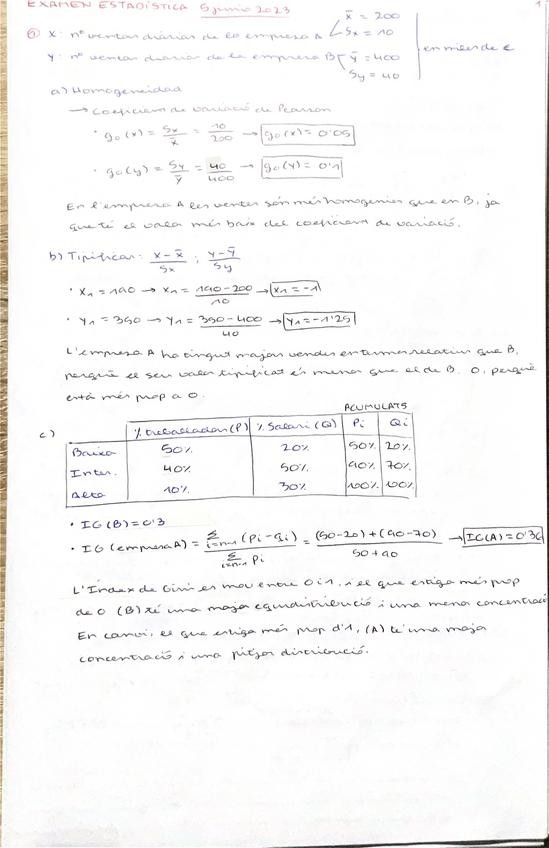 EXAMEN ESTADÍSTICA 5 junio 2023
1
① X: nº ventas diarias de la empresa A x̄ = 200
Sx = 10
Y: nº ventas diarias de la empresa B ȳ = 400
Sy = 40
en miles de €
a) Homogeneidad
→ Coeficient de variació de Pearson
· g₀(x) = Sx/x̄ = 10/200 → g₀(x) = 0'05
· g₀(y) = Sy/ȳ = 40/400 → g₀(y) = 0'1
En l'empresa A les ventes són més homogenies que en B, ja
que té el valor més baix del coeficient de variació.
b) Tipificar: x - x̄/Sx ; y - ȳ/Sy
· x₁ = 190 → x₁ = 190 - 200/10 → x₁ = -1
· y₁ = 350 → y₁ = 350 - 400/40 → y₁ = -1'25
L'empresa A ha tingut majors vendes en termes relatius que B,
perquè el seu valor tipificat és menor que el de B. O, perquè
està més prop a 0.
c)
ACUMULATS
% treballadors (P) % Salari (Q) Pi Qi
Baixa 50% 20% 50% 20%
Inter. 40% 50% 90% 70%
Alta 10% 30% 100% 100%
· IG (B) = 0'3
· IG (empresa A) = Σ (Pi - qi)/Σ Pi = (50-20) + (90-70)/50 + 90 → IG(A) = 0'36
L'Índex de Gini es mou entre 0 i 1, i el que estiga més prop
de 0 (B) té una major equidistribució i una menor concentració
En canvi, el que estiga més prop d'1, (A) té una major
concentració i una pitjor distribució.